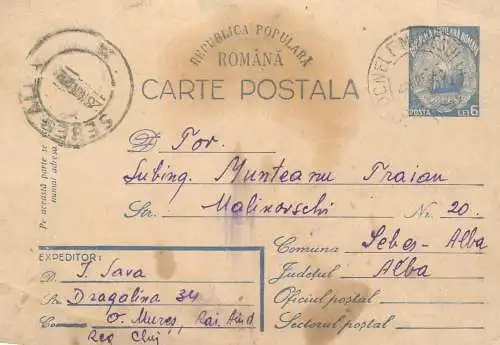 REPUBLICA POPULARĂ
ROMÂNĂ
CARTE POSTALA
POSTA LEI 6
SEBEȘ ALBA
OCNELE M
Pe această parte se
numai adresa
D Tov.
Subing. Munteanu Traian
Str. Malinovschi Nr. 20.
Comuna Sebeș-Alba
Județul Alba
Oficiul poștal
Sectorul poștal
EXPEDITOR:
D. I. Sava
Str. Dragalina 34
Co O. Mureș, Rai. Aiud
Reg Cluj